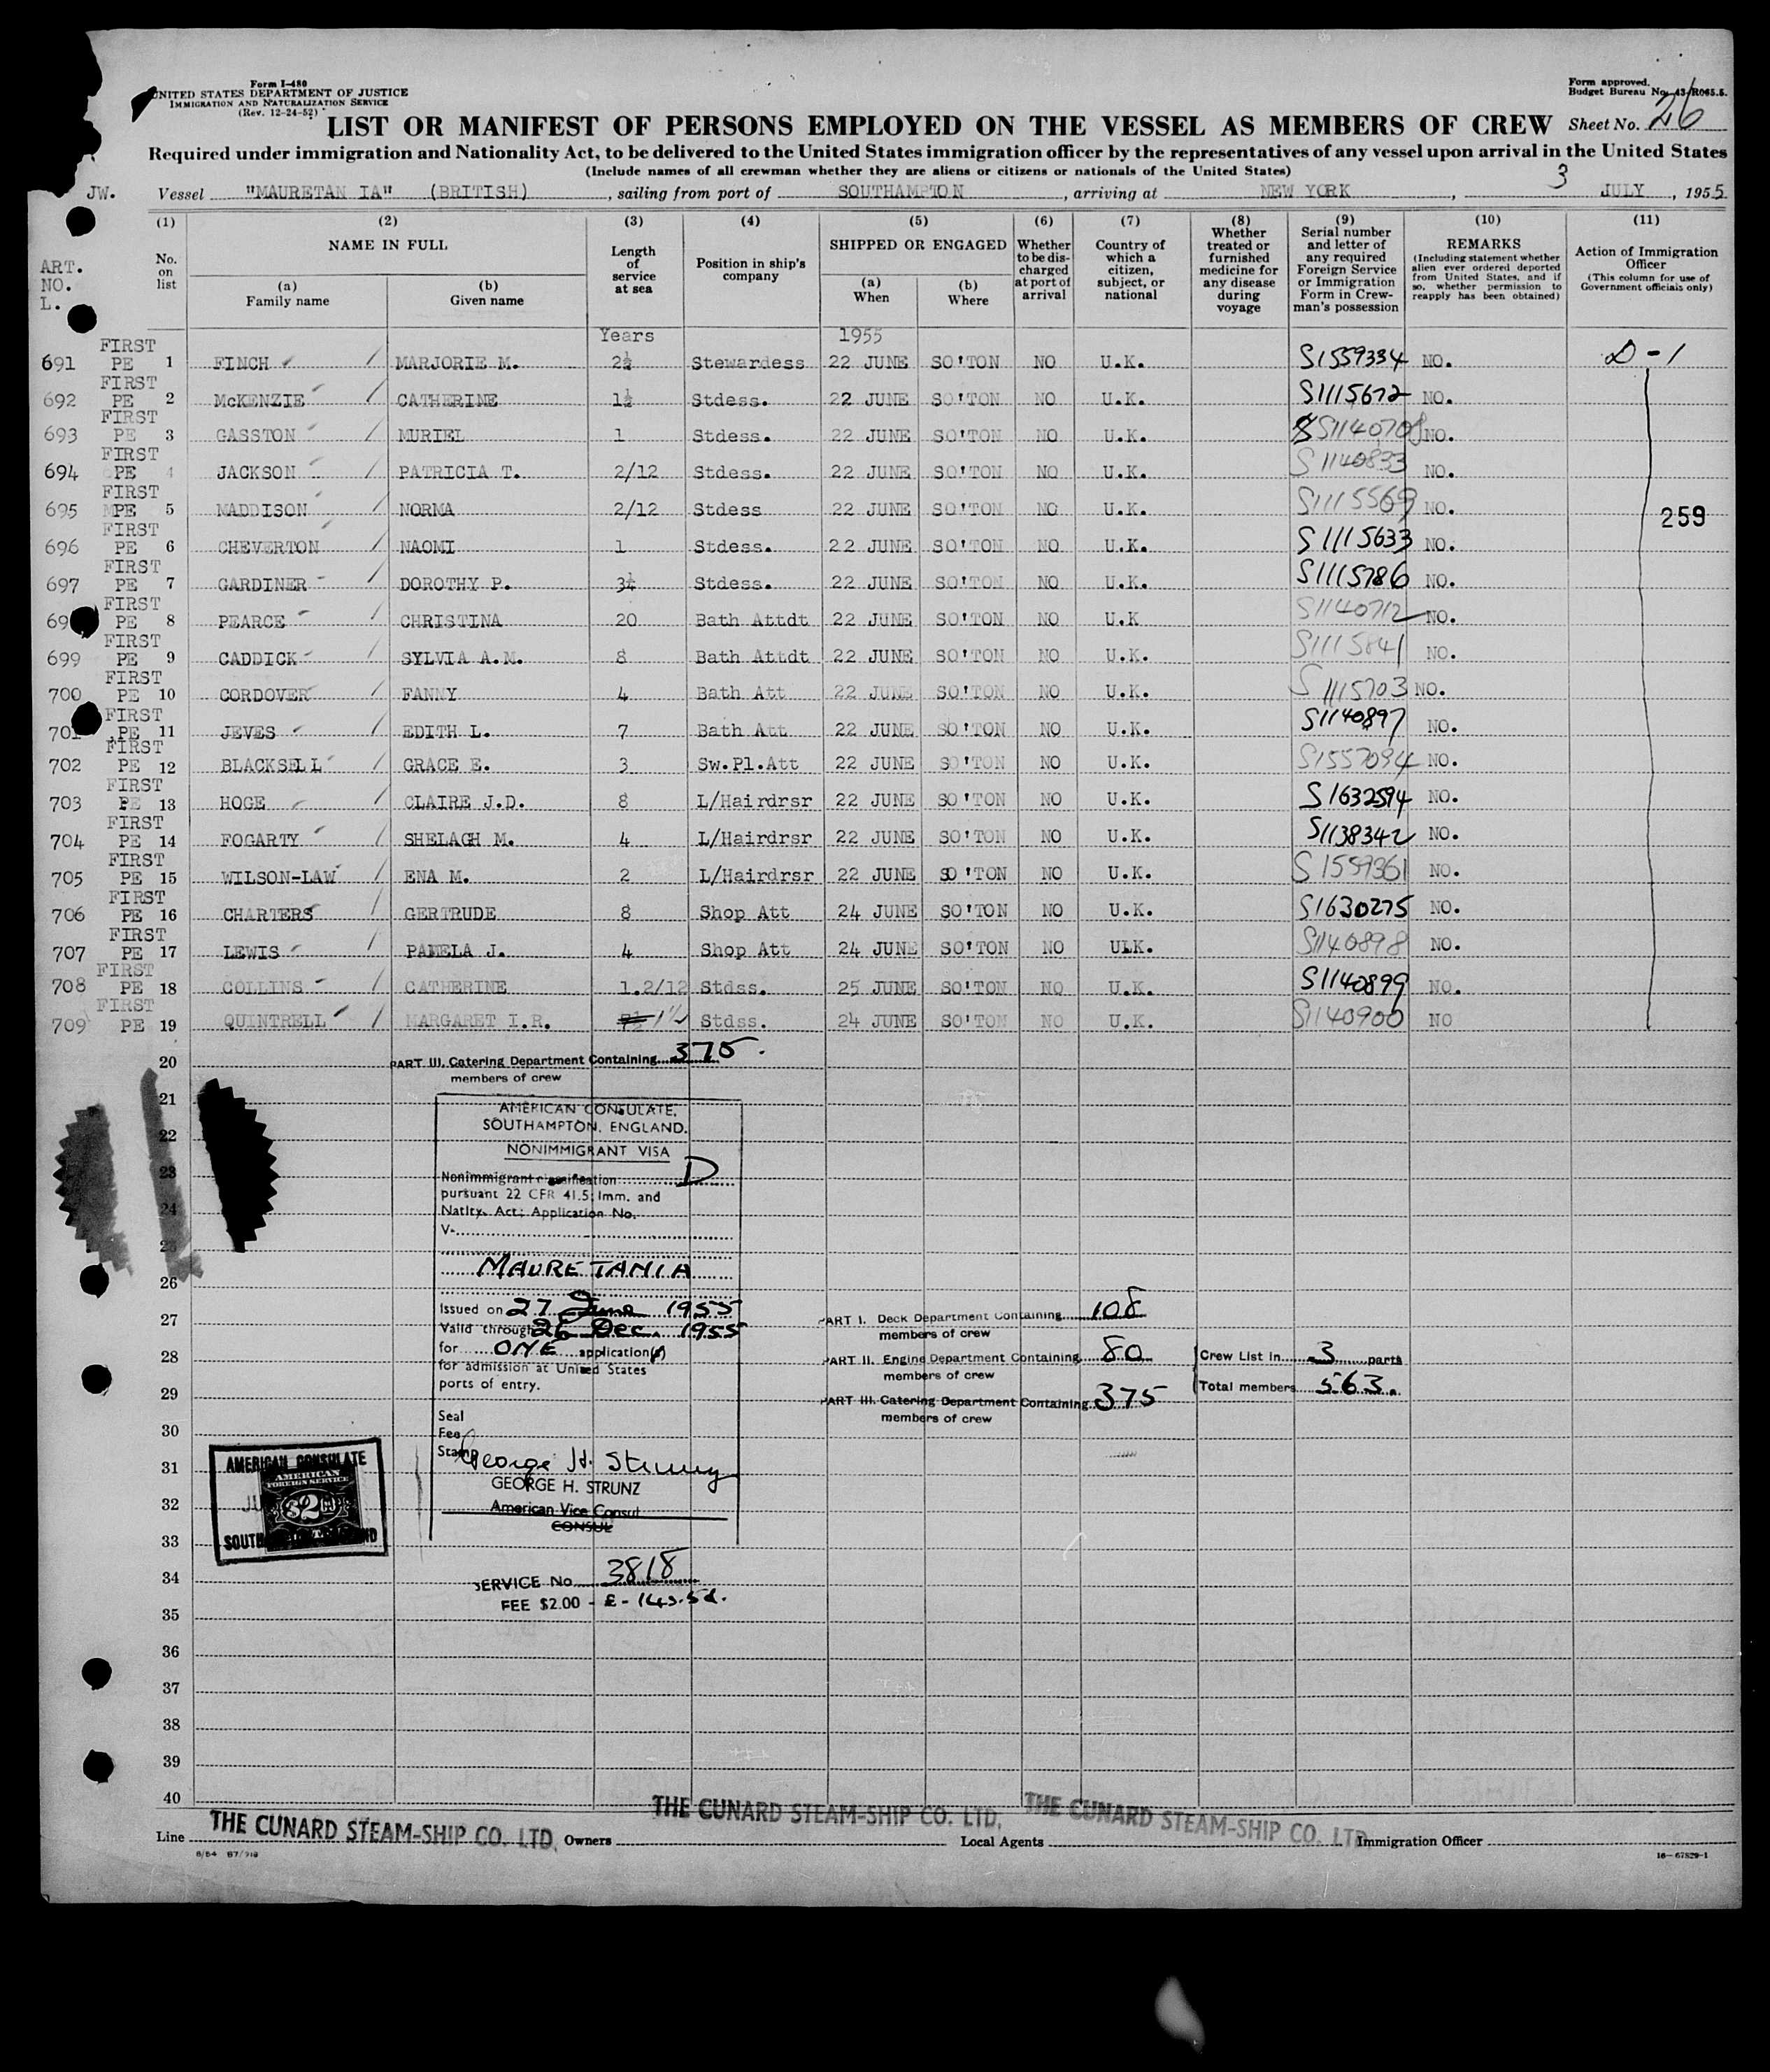 Form I-480
UNITED STATES DEPARTMENT OF JUSTICE
IMMIGRATION AND NATURALIZATION SERVICE
(Rev. 12-24-52)
Form approved.
Budget Bureau No. 43-R065.5.
LIST OR MANIFEST OF PERSONS EMPLOYED ON THE VESSEL AS MEMBERS OF CREW Sheet No. 26
Required under immigration and Nationality Act, to be delivered to the United States immigration officer by the representatives of any vessel upon arrival in the United States
(Include names of all crewman whether they are aliens or citizens or nationals of the United States)
JW. Vessel "MAURETAN IA" (BRITISH), sailing from port of SOUTHAMPTON, arriving at NEW YORK, 3 JULY, 1955
(1) (2) (3) (4) (5) (6) (7) (8) (9) (10) (11)
ART. NO. L.
No. on list
NAME IN FULL
(a) Family name
(b) Given name
Length of service at sea
Position in ship's company
SHIPPED OR ENGAGED
(a) When
(b) Where
Whether to be discharged at port of arrival
Country of which a citizen, subject, or national
Whether treated or furnished medicine for any disease during voyage
Serial number and letter of any required Foreign Service or Immigration Form in Crewman's possession
REMARKS
(Including statement whether alien ever ordered deported from United States, and if so, whether permission to reapply has been obtained)
Action of Immigration Officer
(This column for use of Government officials only)
Years 1955
FIRST
691 PE 1 FINCH MARJORIE M. 2½ Stewardess 22 JUNE SO'TON NO U.K. S1559334 NO. D-1
FIRST
692 PE 2 McKENZIE CATHERINE 1½ Stdess. 22 JUNE SO'TON NO U.K. S1115672 NO.
FIRST
693 PE 3 GASSTON MURIEL 1 Stdess. 22 JUNE SO'TON NO U.K. S1140708 NO.
FIRST
694 PE 4 JACKSON PATRICIA T. 2/12 Stdess. 22 JUNE SO'TON NO U.K. S1140833 NO.
FIRST
695 PE 5 MADDISON NORMA 2/12 Stdess 22 JUNE SO'TON NO U.K. S1115569 NO.
259
FIRST
696 PE 6 CHEVERTON NAOMI 1 Stdess. 22 JUNE SO'TON NO U.K. S1115633 NO.
FIRST
697 PE 7 GARDINER DOROTHY P. 3¼ Stdess. 22 JUNE SO'TON NO U.K. S1115786 NO.
FIRST
69 PE 8 PEARCE CHRISTINA 20 Bath Attdt 22 JUNE SO'TON NO U.K S1140712 NO.
FIRST
699 PE 9 CADDICK SYLVIA A.M. 8 Bath Attdt 22 JUNE SO'TON NO U.K. S1115841 NO.
FIRST
700 PE 10 CORDOVER FANNY 4 Bath Att 22 JUNE SO'TON NO U.K. S1115703 NO.
FIRST
701 PE 11 JEVES EDITH L. 7 Bath Att 22 JUNE SO'TON NO U.K. S1140897 NO.
FIRST
702 PE 12 BLACKSELL GRACE E. 3 Sw.Pl.Att 22 JUNE SO'TON NO U.K. S1557094 NO.
FIRST
703 PE 13 HOGE CLAIRE J.D. 8 L/Hairdrsr 22 JUNE SO'TON NO U.K. S1632594 NO.
FIRST
704 PE 14 FOGARTY SHELAGH M. 4 L/Hairdrsr 22 JUNE SO'TON NO U.K. S1138342 NO.
FIRST
705 PE 15 WILSON-LAW ENA M. 2 L/Hairdrsr 22 JUNE SO'TON NO U.K. S1559361 NO.
FIRST
706 PE 16 CHARTERS GERTRUDE 8 Shop Att 24 JUNE SO'TON NO U.K. S1630275 NO.
FIRST
707 PE 17 LEWIS PAMELA J. 4 Shop Att 24 JUNE SO'TON NO ULK. S1140898 NO.
FIRST
708 PE 18 COLLINS CATHERINE 1.2/12 Stdss. 25 JUNE SO'TON NO U.K. S1140899 NO.
FIRST
709 PE 19 QUINTRELL MARGARET I.R. 1½ Stdss. 24 JUNE SO'TON NO U.K. S1140900 NO
20
PART III. Catering Department Containing 375.
members of crew
21
AMERICAN CONSULATE,
SOUTHAMPTON, ENGLAND.
22
NONIMMIGRANT VISA
23
Nonimmigrant classification D
pursuant 22 CFR 41.5; Imm. and
24
Natlty. Act; Application No.
V-
25
MAURETANIA
26
Issued on 27 June 1955
27
Valid through 26 Dec. 1955
for ONE application(s)
28
for admission at United States
ports of entry.
29
Seal
30
Fee
Stamp
George H. Strunz
31
GEORGE H. STRUNZ
32
American Vice Consul
CONSUL
33
PART I. Deck Department Containing 108
members of crew
PART II. Engine Department Containing 80
members of crew
PART III. Catering Department Containing 375
members of crew
Crew List in 3 parts
Total members 563.
AMERICAN CONSULATE
AMERICAN
FOREIGN SERVICE
$2
34
SERVICE No 3818
FEE $2.00 - £ - 14s. 5d.
35
36
37
38
39
40
Line THE CUNARD STEAM-SHIP CO. LTD. Owners THE CUNARD STEAM-SHIP CO. LTD. Local Agents THE CUNARD STEAM-SHIP CO. LTD Immigration Officer
16-67829-1